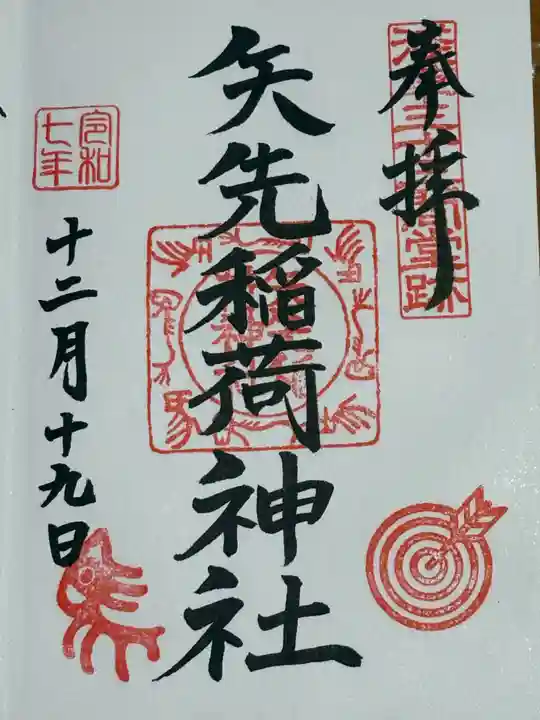 奉拝
浅草三十三間堂跡
矢先稲荷神社
令和
七年
十二月十九日